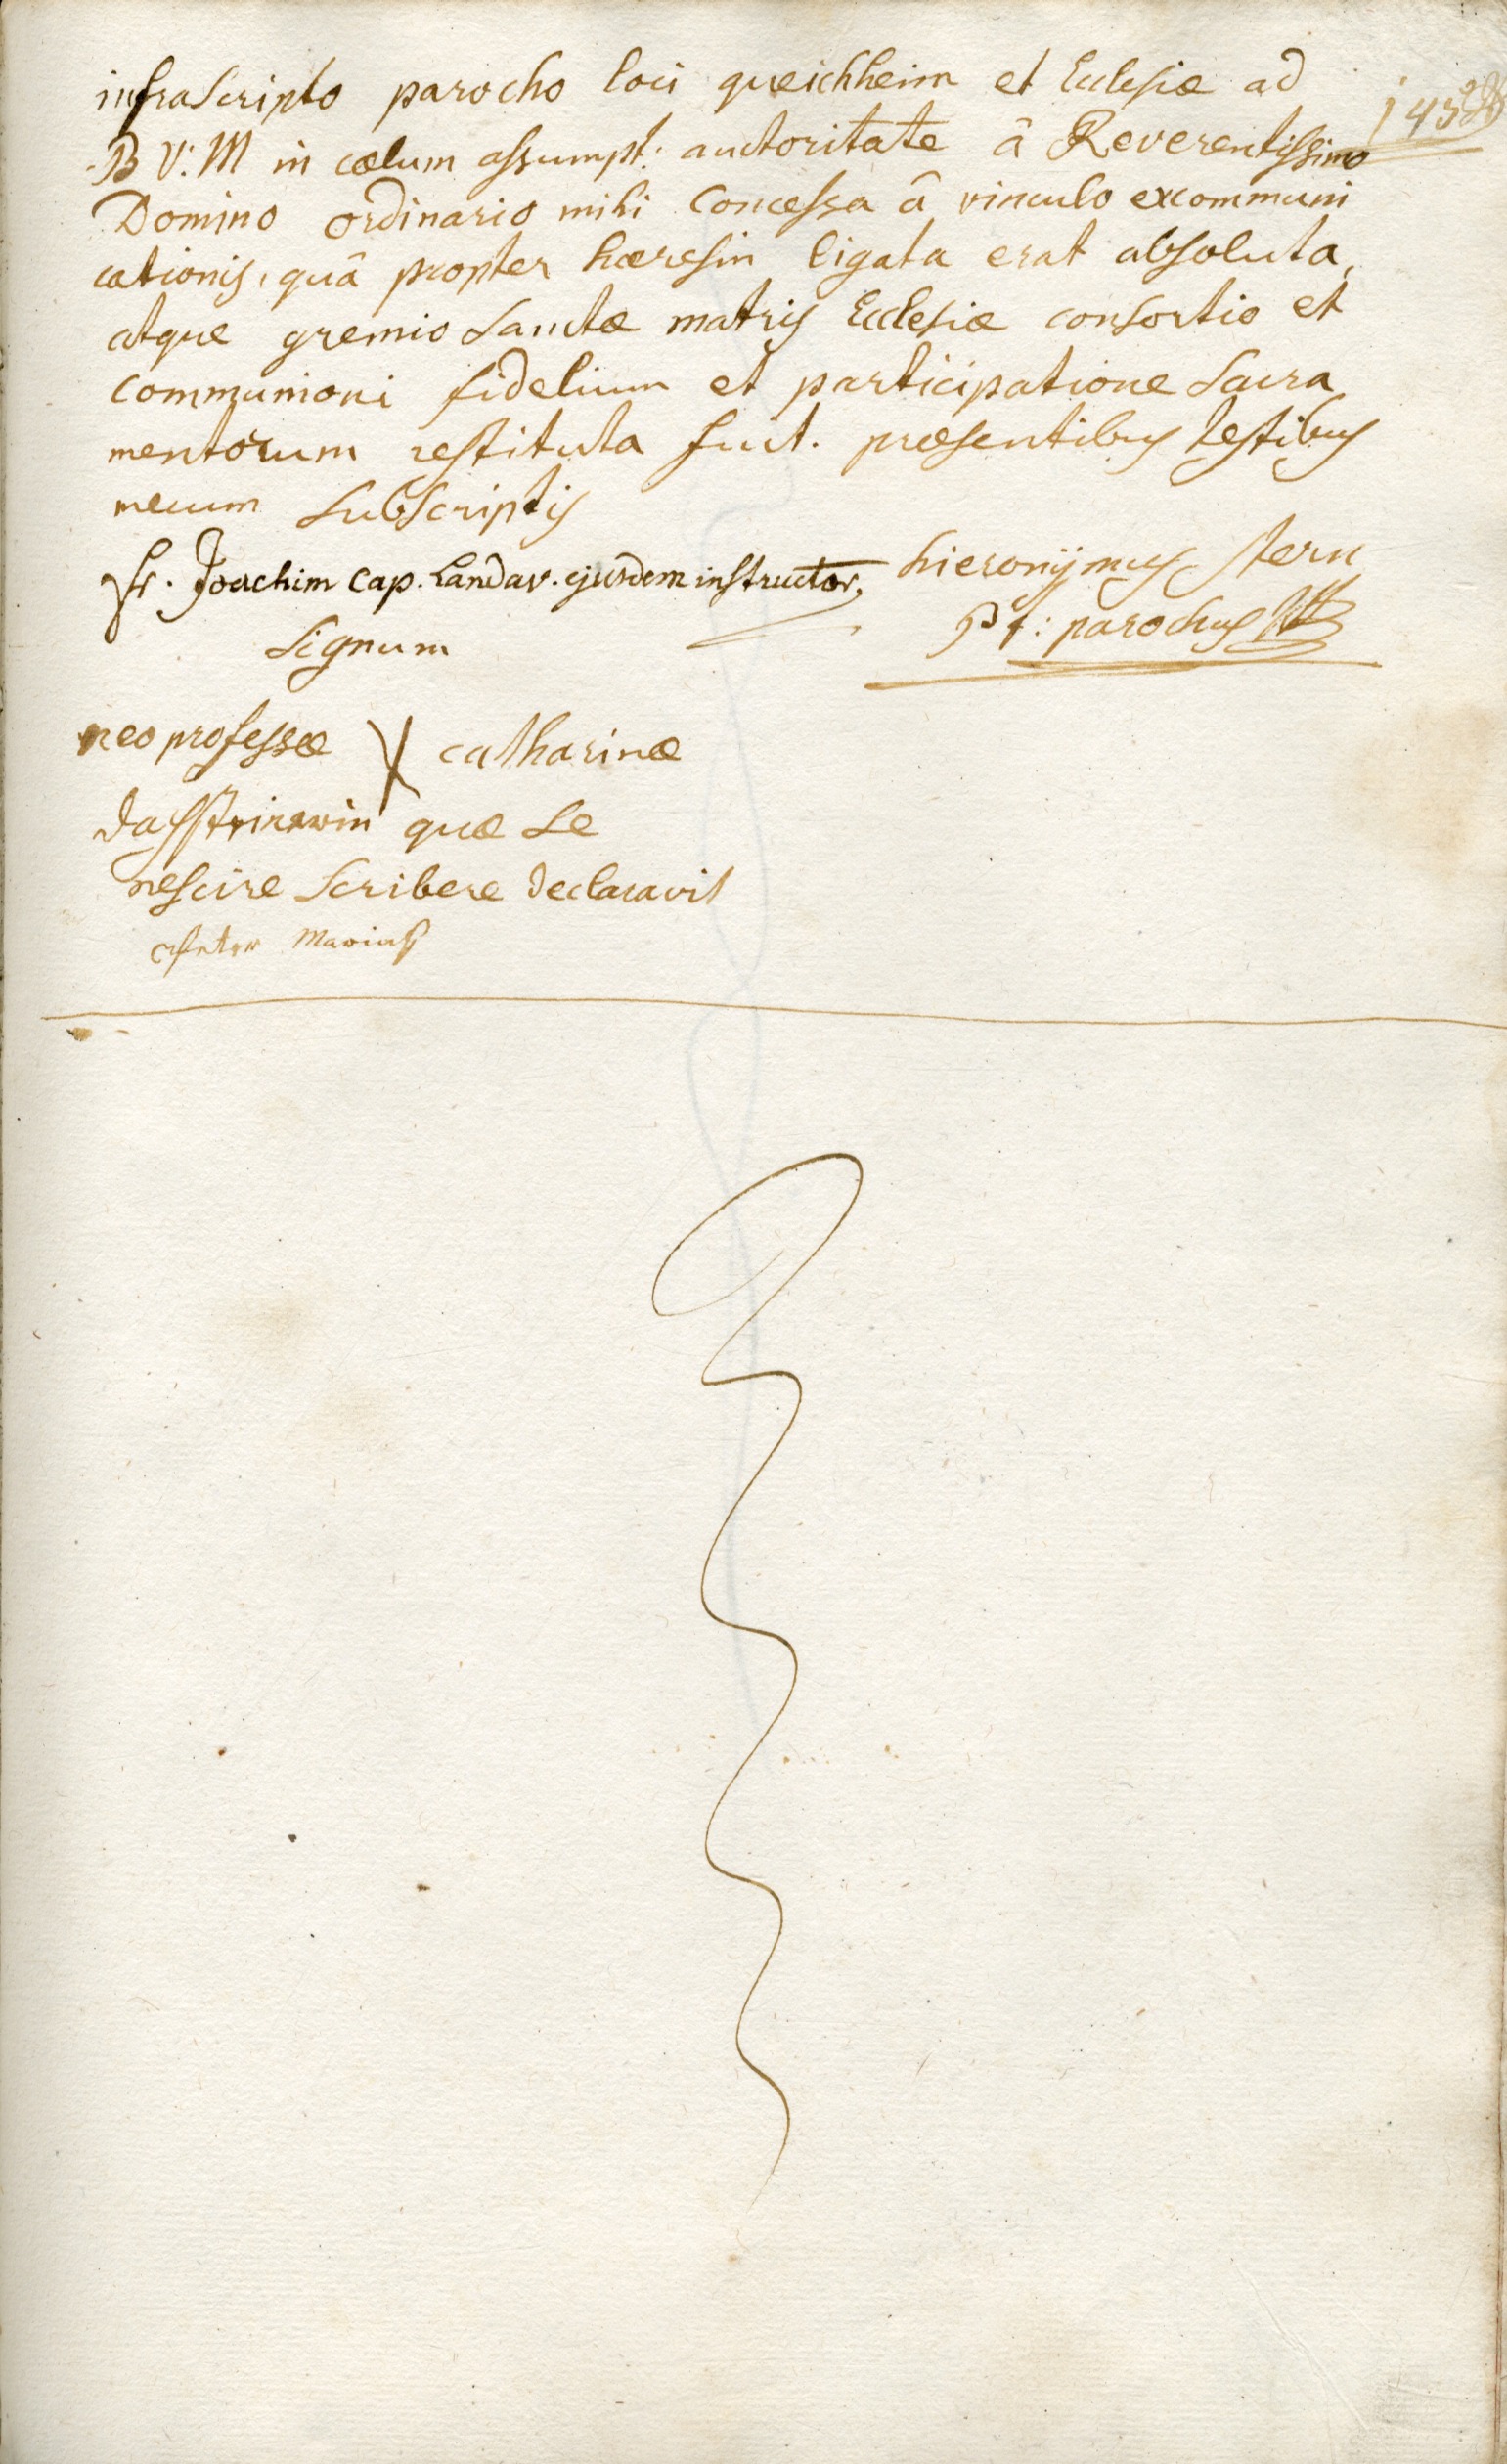 infrascripto parocho loci queichheim et Ecclesiæ ad
B V: M in cœlum assumpt: auctoritate â Reverentissimo
Domino ordinario mihi Concessa â vinculo excommuni
cationis, quâ propter hæresin ligata erat absoluta,
atque gremio sanctæ matris Ecclesiæ consortio et
communioni fidelium et participatione sacra
mentorum restituta fuit. præsentibus testibus
mecum subscriptis
fr. Joachim Cap. Landav. ejusdem instructor,
hieronÿmus stern
pt: parochus
signum
neo professæ X catharinæ
quæ se
nescire scribere declaravit